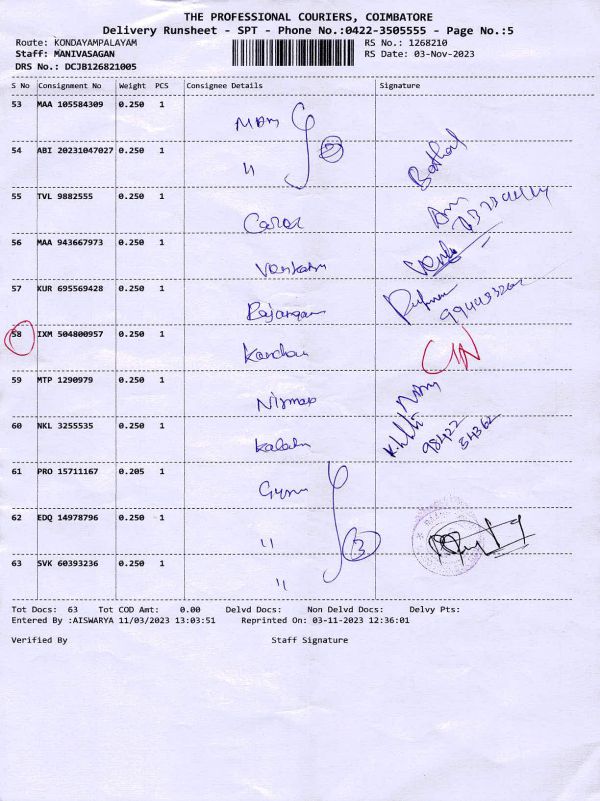 THE PROFESSIONAL COURIERS, COIMBATORE
Delivery Runsheet - SPT - Phone No.:0422-3505555 - Page No.:5
Route: KONDAYAMPALAYAM RS No.: 1268210
Staff: MANIVASAGAN RS Date: 03-Nov-2023
DRS No.: DCJB126821005
S No Consignment No Weight PCS Consignee Details Signature
53 MAA 105584309 0.250 1
54 ABI 20231047027 0.250 1 "
55 TVL 9882555 0.250 1
56 MAA 943667973 0.250 1
57 KUR 695569428 0.250 1
58 IXM 504800957 0.250 1
59 MTP 1290979 0.250 1
60 NKL 3255535 0.250 1
61 PRO 15711167 0.205 1
62 EDQ 14978796 0.250 1 " 3
63 SVK 60393236 0.250 1 "
Tot Docs: 63 Tot COD Amt: 0.00 Delvd Docs: Non Delvd Docs: Delvy Pts:
Entered By :AISWARYA 11/03/2023 13:03:51 Reprinted On: 03-11-2023 12:36:01
Verified By Staff Signature